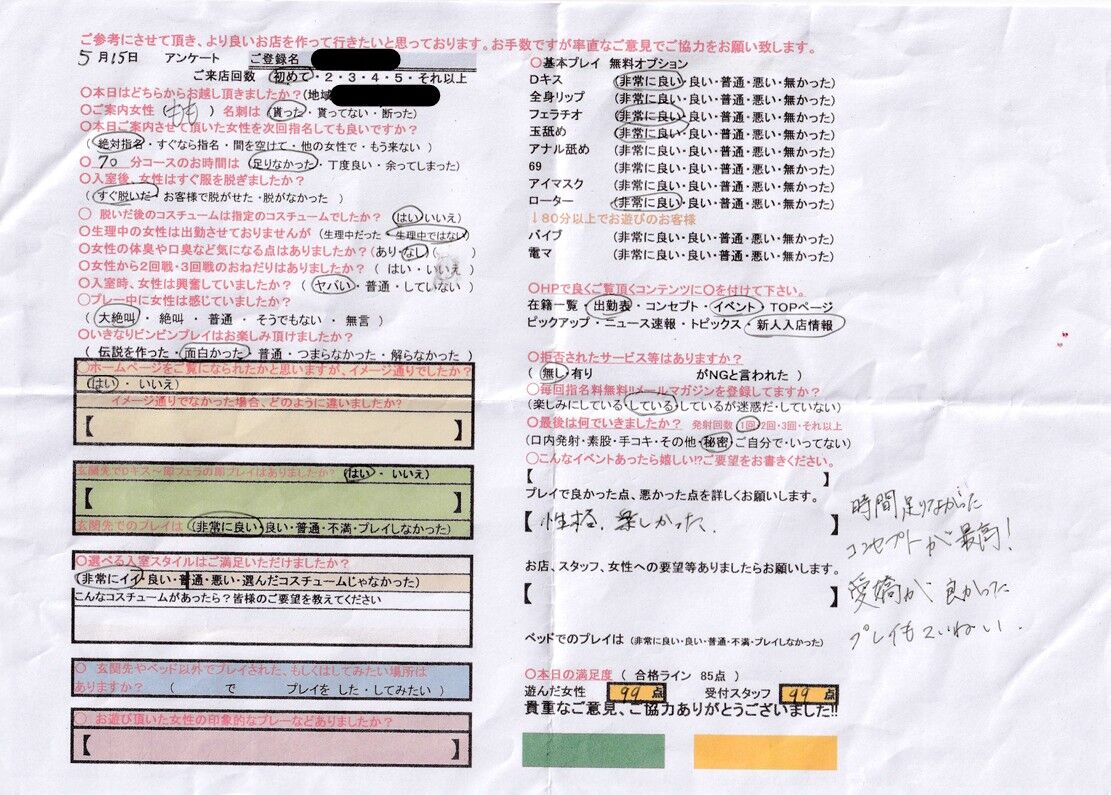 ご参考にさせて頂き、より良いお店を作って行きたいと思っております。お手数ですが率直なご意見でご協力をお願い致します。
5月15日 アンケート ご登録名
ご来店回数 初めて・2・3・4・5・それ以上
〇本日はどちらからお越し頂きましたか?(地域
〇ご案内女性(もも)名刺は(貰った・貰ってない・断った)
〇本日ご案内させて頂いた女性を次回指名しても良いですか?
(絶対指名・すぐなら指名・間を空けて・他の女性で・もう来ない)
〇70分コースのお時間は(足りなかった・丁度良い・余ってしまった)
〇入室後、女性はすぐ服を脱ぎましたか?
(すぐ脱いだ・お客様で脱がせた・脱がなかった)
〇 脱いだ後のコスチュームは指定のコスチュームでしたか?(はい・いいえ)
〇生理中の女性は出勤させておりませんが(生理中だった・生理中ではない)
〇女性の体臭や口臭など気になる点はありましたか?(あり・なし)( )
〇女性から2回戦・3回戦のおねだりはありましたか?(はい・いいえ)
〇入室時、女性は興奮していましたか?(ヤバい・普通・していない)
〇プレー中に女性は感じていましたか?
(大絶叫・絶叫・普通・そうでもない・無言)
〇いきなりビンビンプレイはお楽しみ頂けましたか?
(伝説を作った・面白かった・普通・つまらなかった・解らなかった)
〇ホームページをご覧になられたかと思いますが、イメージ通りでしたか?
(はい・いいえ)
イメージ通りでなかった場合、どのように違いましたか?
【 】
玄関先でDキス~即フェラの即プレイはありましたか?(はい・いいえ)
【 】
玄関先でのプレイは(非常に良い・良い・普通・不満・プレイしなかった)
〇選べる入室スタイルはご満足いただけましたか?
(非常にイイ・良い・普通・悪い・選んだコスチュームじゃなかった)
こんなコスチュームがあったら?皆様のご要望を教えてください
〇 玄関先やベッド以外でプレイされた、もしくはしてみたい場所は
ありますか?( で プレイを した・してみたい)
〇 お遊び頂いた女性の印象的なプレーなどありましたか?
【 】
〇基本プレイ 無料オプション
Dキス (非常に良い・良い・普通・悪い・無かった)
全身リップ (非常に良い・良い・普通・悪い・無かった)
フェラチオ (非常に良い・良い・普通・悪い・無かった)
玉舐め (非常に良い・良い・普通・悪い・無かった)
アナル舐め (非常に良い・良い・普通・悪い・無かった)
69 (非常に良い・良い・普通・悪い・無かった)
アイマスク (非常に良い・良い・普通・悪い・無かった)
ローター (非常に良い・良い・普通・悪い・無かった)
↓80分以上でお遊びのお客様
バイブ (非常に良い・良い・普通・悪い・無かった)
電マ (非常に良い・良い・普通・悪い・無かった)
〇HPで良くご覧頂くコンテンツに〇を付けて下さい。
在籍一覧・出勤表・コンセプト・イベント・TOPページ
ピックアップ・ニュース速報・トピックス・新人入店情報
〇拒否されたサービス等はありますか?
(無し・有り がNGと言われた)
〇毎回指名料無料!!メールマガジンを登録してますか?
(楽しみにしている・している・しているが迷惑だ・していない)
〇最後は何でいきましたか? 発射回数 1回・2回・3回・それ以上
(口内発射・素股・手コキ・その他・秘密・ご自分で・いってない)
〇こんなイベントあったら嬉しい!?ご要望をお書きください。
【 】
プレイで良かった点、悪かった点を詳しくお願いします。
【性格、楽しかった、 】
お店、スタッフ、女性への要望等ありましたらお願いします。
【 】
ベッドでのプレイは(非常に良い・良い・普通・不満・プレイしなかった)
〇本日の満足度(合格ライン 85点)
遊んだ女性 99点 受付スタッフ 99点
貴重なご意見、ご協力ありがとうございました!!
時間足りなかった
コンセプトが最高!
愛嬌が良かった
プレイもていねい.